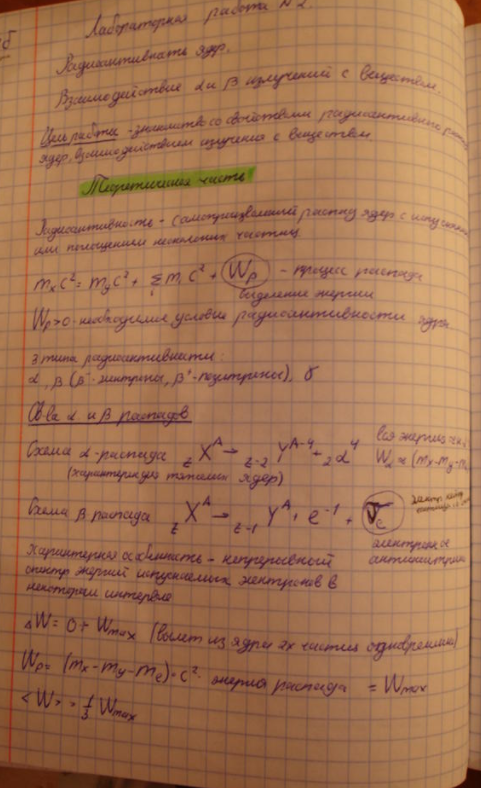 Лабораторная работа N2.
Радиоактивность ядр.
Взаимодействие α и β излучений с веществом.
Цель работы - знакомство со свойствами радиоактивных
ядер, взаимодействием излучения с веществом.
Теоретическая часть
Радиоактивность - самопроизвольный распад ядер с испусканием
или поглощением нескольких частиц
mₓc² = m_yc² + Σᵢ mᵢc² + W_p - процесс распада
выделение энергии
W_p>0 - необходимое условие радиоактивности ядра.
3 типа радиоактивности:
α, β (β⁻-электроны, β⁺-позитроны), γ
Св-ва α и β распадов
Схема α-распада zX^A → z-2Y^A-4 + ₂α⁴ вся энергия
(характерна для тяжелых ядер)
Схема β распада zX^A → z-1Y^A + e⁻¹ + ν̃e
электронное
Характерная особенность - непрерывный антинейтрино
спектр энергий испускаемых электронов в
некотором интервале
ΔW = 0 ÷ Wmax (вылет из ядра 2х частиц одновременно)
W_p = (mₓ-m_y-m_e)·c² - энергия распада = Wmax
<W> = 1/3 Wmax